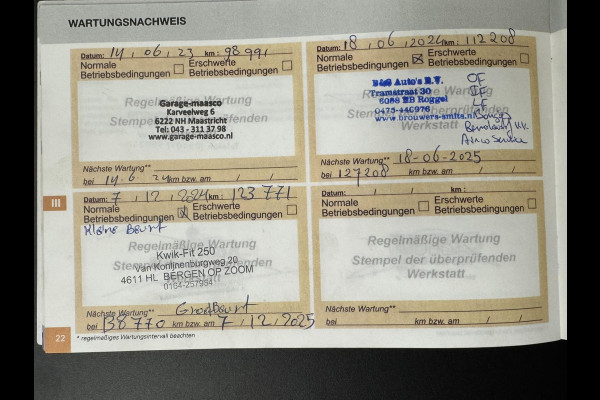 WARTUNGSNACHWEIS
Datum: 14 / 06 / 23 km: 98 991
Normale Betriebsbedingungen
Erschwerte Betriebsbedingungen
Regelmäßige Wartung
Garage-maasco
Karveelweg 6
6222 NH Maastricht
Tel: 043 - 311 37 98
www.garage-maasco.nl
Nächste Wartung**
bei 14.6 km bzw. am / /
Datum: 18 / 06 / 2024 km: 112208
Normale Betriebsbedingungen
Erschwerte Betriebsbedingungen
Auto's B.V.
Tramstraat 30
6088 EB Roggel
0475-440976
www.brouwers-smits.nl
Werkstatt
OF
IF
LF
Nächste Wartung** 18-06-2025
bei 127208 km bzw. am / /
Datum: 7 / 12 / 2024 km: 123 771
Normale Betriebsbedingungen
Erschwerte Betriebsbedingungen
Kleine Beurt
Regelmäßige Wartung
Kwik-Fit 250
Van Konijnenburgweg 20
4611 HL BERGEN OP ZOOM
0164-257954
Nächste Wartung** Grote Beurt
bei 138 770 km bzw. am 7 / 12 / 2025
Datum: / / km:
Normale Betriebsbedingungen
Erschwerte Betriebsbedingungen
Regelmäßige Wartung
Stempel der überprüfenden
Werkstatt
Nächste Wartung**
bei km bzw. am / /
III
22
* regelmäßiges Wartungsintervall beachten